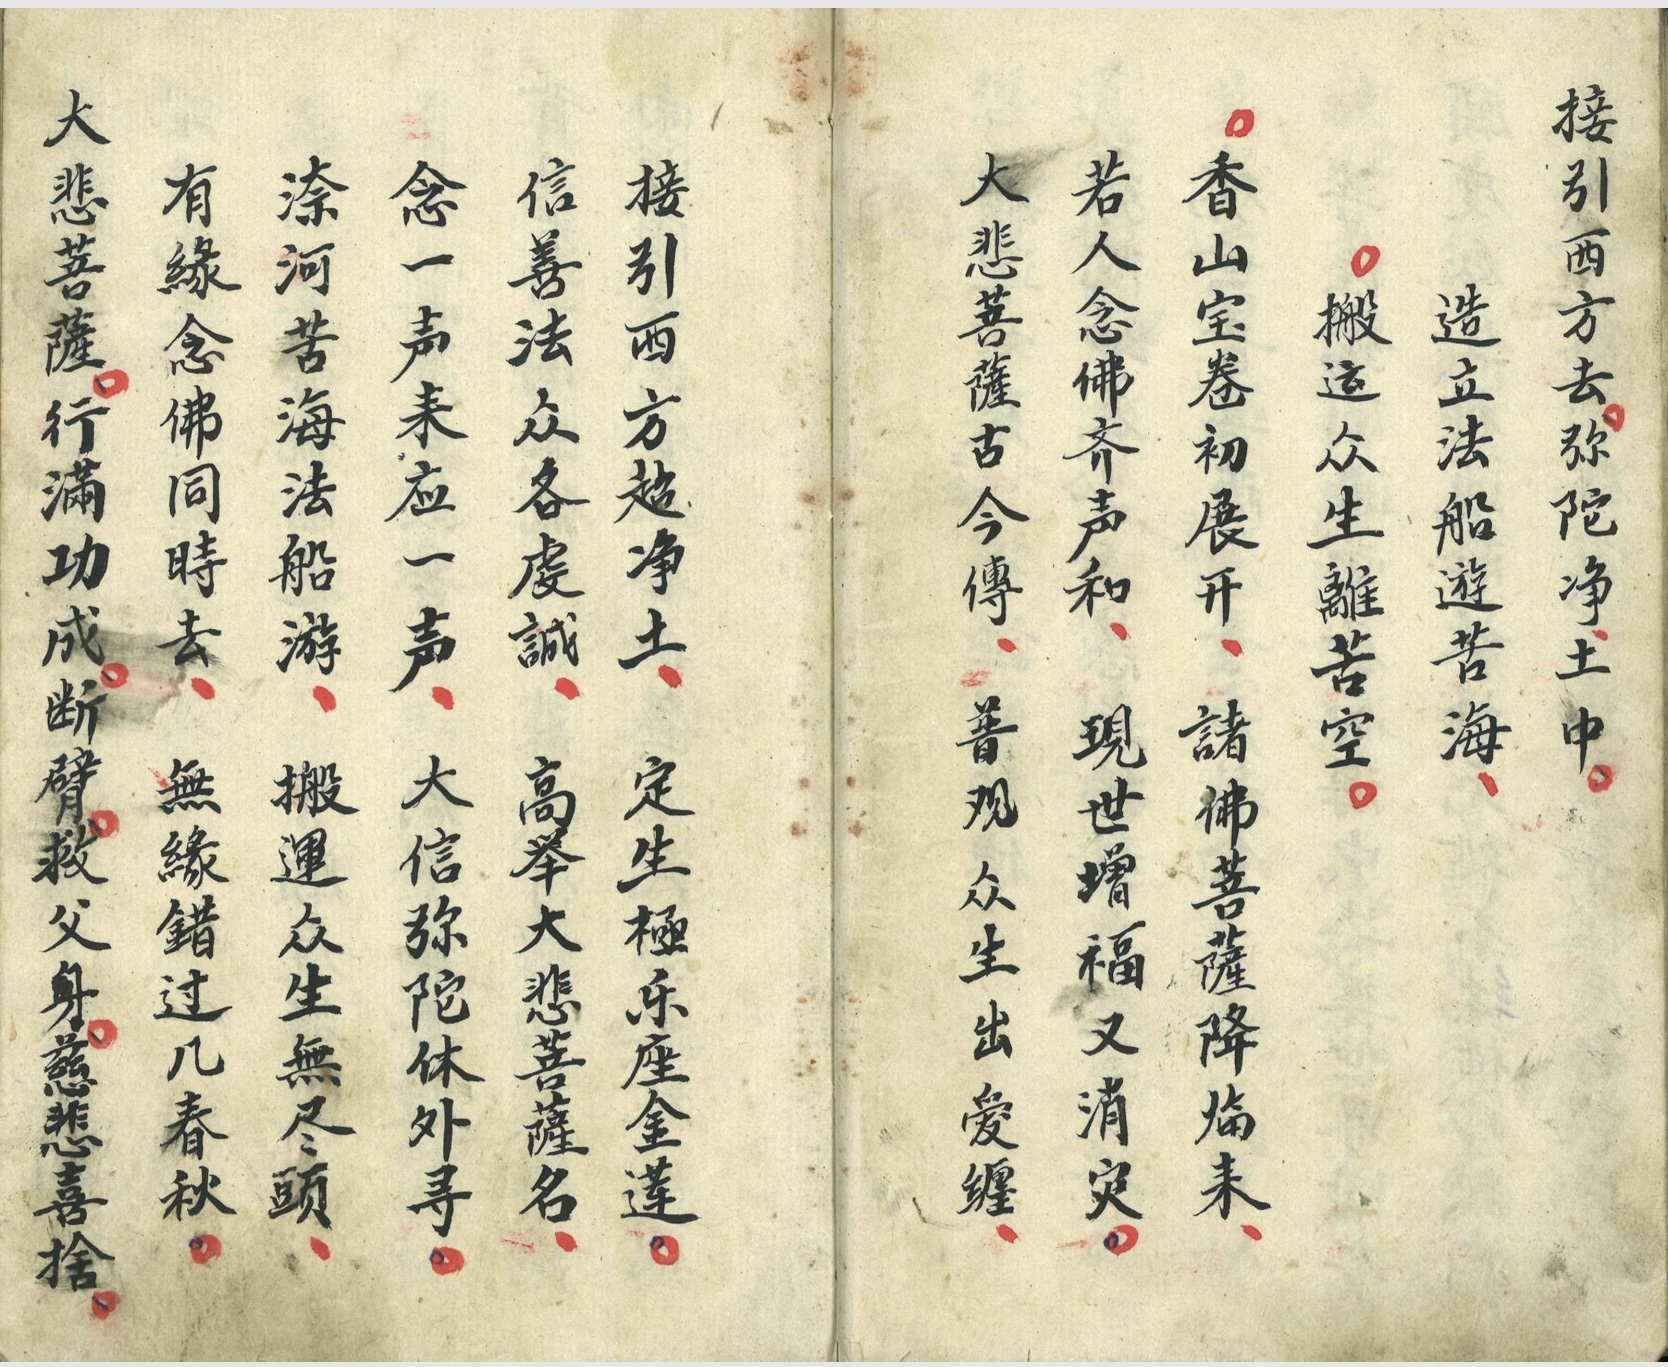 接引西方去。弥陀净土中。
造立法船遊苦海、
搬运众生離苦空。
香山宝卷初展开、諸佛菩薩降临来、
若人念佛齐声和、現世增福又消灾。
大悲菩薩古今傳、普观众生出愛缠、
接引西方超净土、定生極乐座金莲。
信善法众各虔誠、高举大悲菩薩名、
念一声来应一声、大信弥陀休外寻。
渿河苦海法船游、搬運众生無尽頭、
有緣念佛同時去、無緣錯过几春秋。
大悲菩薩。行滿功成。断臂。救父身。慈悲喜捨。